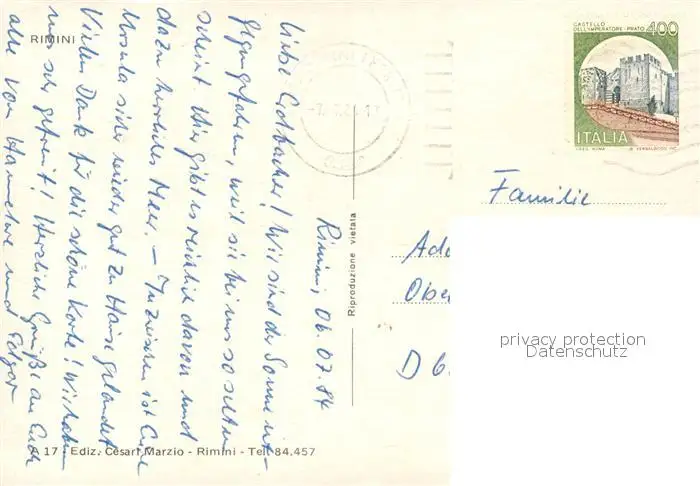 RIMINI
Rimini, 06.07.84
Liebe ! Wir sind der Sonne ent-
gegengefahren, weil sie bei uns so selten
scheint. Hier gibt es reichlich davon und
dazu herrliches Meer. – Inzwischen ist Eure
Ursula sicher wieder gut zu Hause gelandet.
Vielen Dank für die schöne Karte! Wir haben
uns sehr gefreut! Herzliche Grüße an Euch
alle von Hannelore und Edgar
A 17 - Ediz. Cesari Marzio - Rimini - Tel. 84.457
Riproduzione vietata
CASTELLO
DELL'IMPERATORE · PRATO
400
ITALIA
Familie
Ado
Obe
D 6
privacy protection
Datenschutz